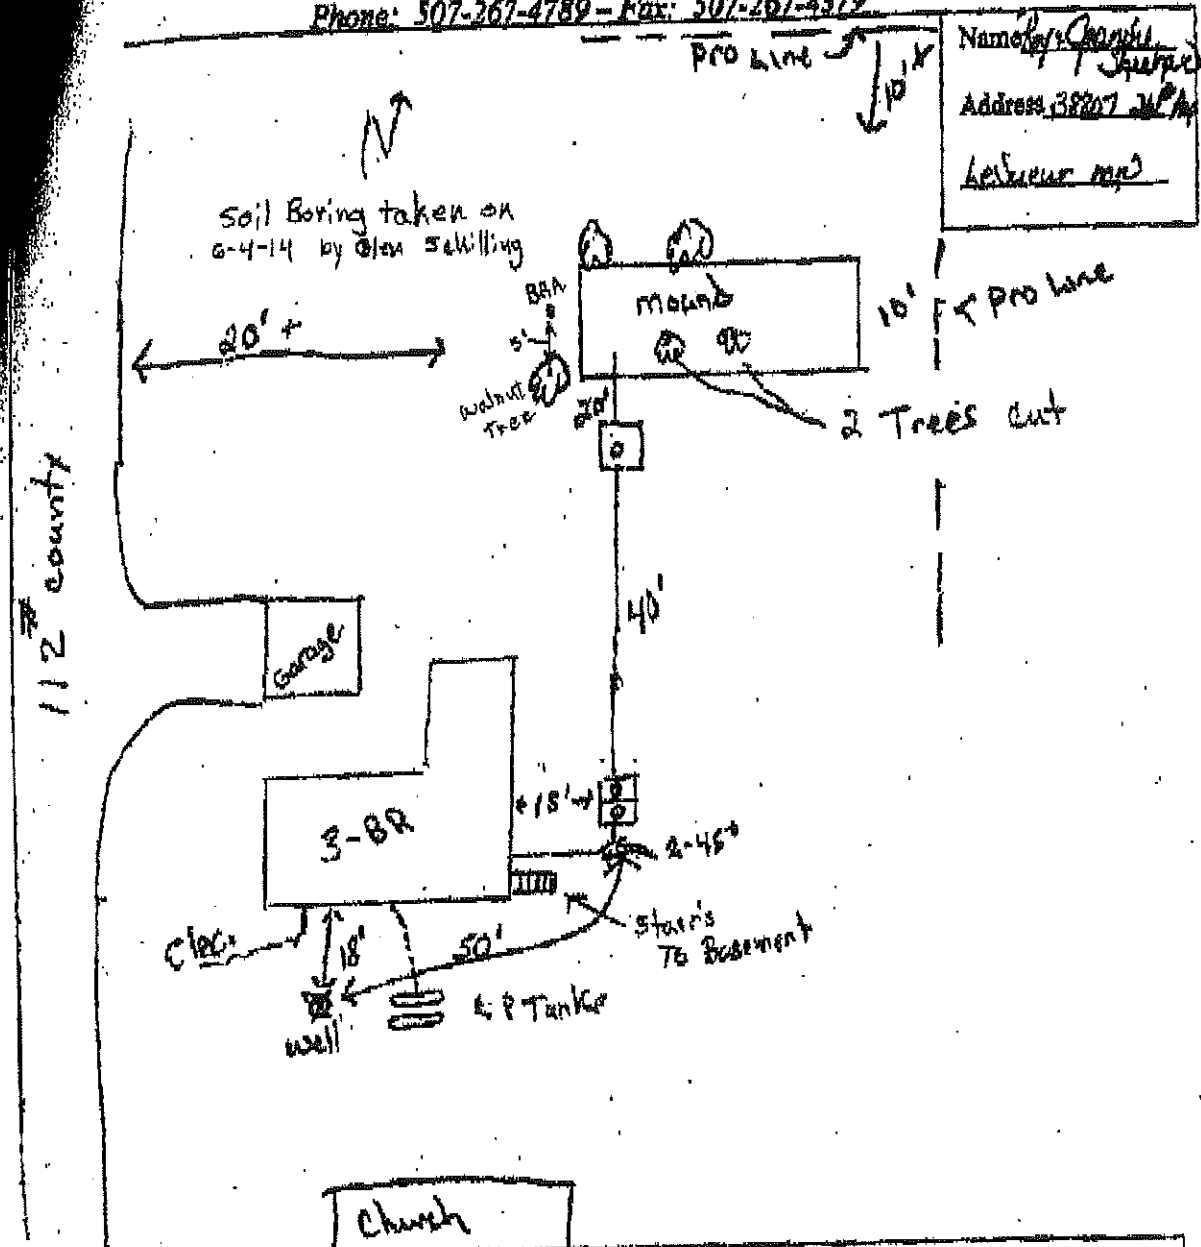 Phone: 507-267-4789 – Fax: 507-267-4379
Pro Line
10' +
Name
Address 38807
LeSueur mn
N
Soil Boring taken on
6-4-14 by Glen Schilling
20' +
BRA
5'
Walnut
Tree
mound
10'
Pro Line
20'
2 Trees Cut
112 # county
Garage
40'
3-BR
15'
2-45°
Elec.
18'
50'
Stair's
To Basement
well
L.P Tanks
Church